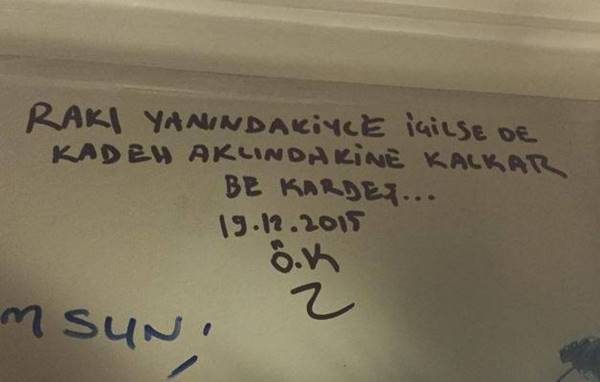 RAKI YANINDAKİYLE İÇİLSE DE
KADEH AKLINDAKİNE KALKAR
BE KARDEŞ...
19.12.2015
Ö.K
M SUN